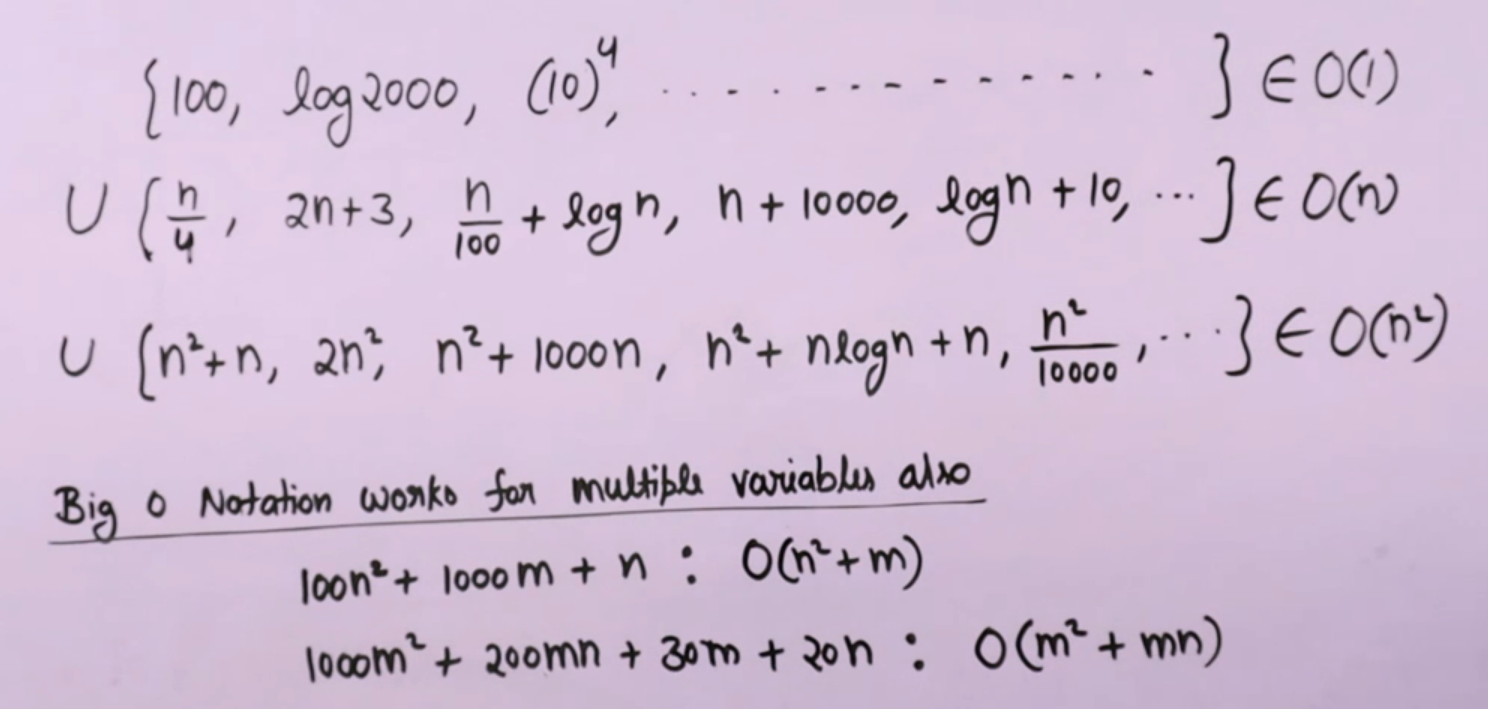 {100, log2000, (10)⁴, . . . . . . . . . . . . . } ∈ O(1)
∪ {n/4, 2n+3, n/100 + logn, n + 10000, logn + 10, ...} ∈ O(n)
∪ {n²+n, 2n², n²+ 1000n, n²+ nlogn + n, n²/10000, ...} ∈ O(n²)
Big O Notation works for multiple variables also
100n² + 1000m + n : O(n²+m)
1000m² + 200mn + 30m + 20n : O(m² + mn)